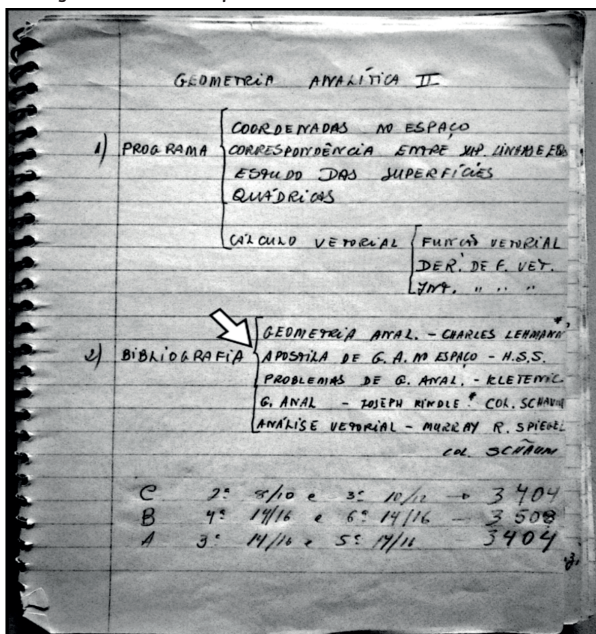 GEOMETRIA ANALÍTICA II
COORDENADAS NO ESPAÇO
1) PROGRAMA CORRESPONDÊNCIA ENTRE SUP. LINHAS E
ESTUDO DAS SUPERFÍCIES
QUÁDRICAS
CÁLCULO VETORIAL FUNÇÃO VETORIAL
DER. DE F. VET.
INT. " " "
GEOMETRIA ANAL. - CHARLES LEHMANN*
2) BIBLIOGRAFIA APOSTILA DE G.A. NO ESPAÇO - H.S.S.
PROBLEMAS DE G. ANAL. - KLETENIC
G. ANAL - JOSEPH KINDLE* COL. SCHAUM
ANÁLISE VETORIAL - MURRAY R. SPIEGEL
COL. SCHAUM
C 2ª 8/10 e 3ª 10/12 - 3404
B 4ª 14/16 e 6ª 14/16 - 3508
A 3ª 14/16 e 5ª 14/16 3404